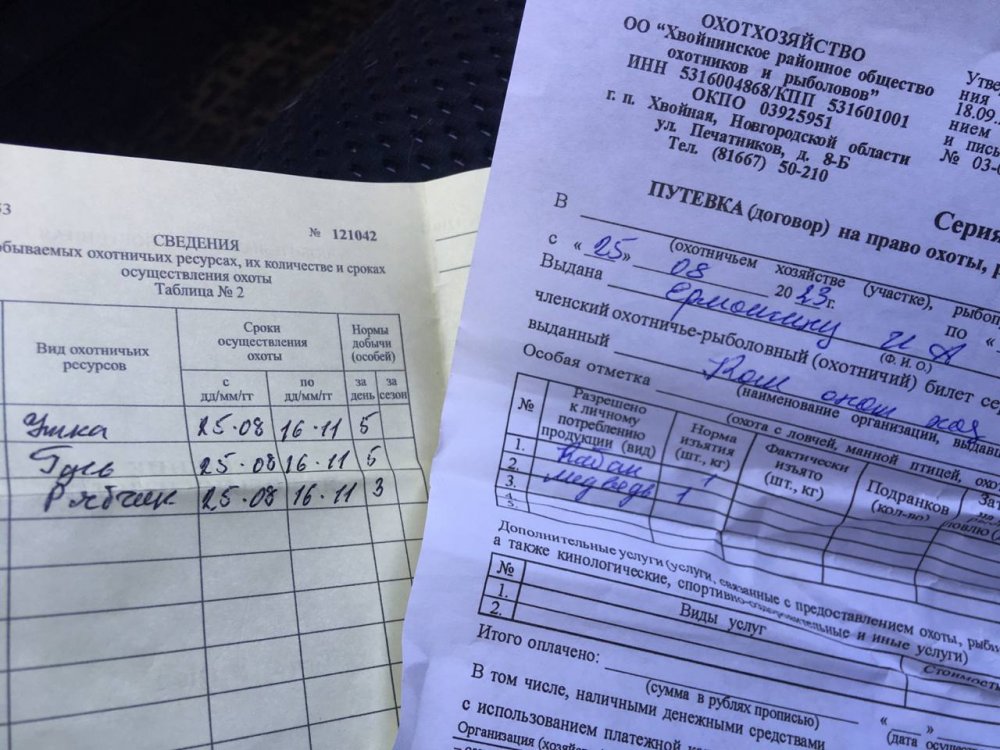 53
№ 121042
СВЕДЕНИЯ
обываемых охотничьих ресурсах, их количестве и сроках
осуществления охоты
Таблица № 2
Вид охотничьих ресурсов
Сроки осуществления охоты
Нормы добычи (особей)
с дд/мм/гг
по дд/мм/гг
за день
за сезон
Утка 25.08 16.11 5
Гусь 25.08 16.11 5
Рябчик 25.08 16.11 3
ОХОТХОЗЯЙСТВО
ОО "Хвойнинское районное общество
охотников и рыболовов"
ИНН 5316004868/КПП 531601001
ОКПО 03925951
г. п. Хвойная, Новгородской области
ул. Печатников, д. 8-Б
Тел. (81667) 50-210
Утве
ния
18.09.
нием
и пись
№ 03-0
Серия
ПУТЕВКА (договор) на право охоты, р
В
(охотничьем хозяйстве (участке), рыбо
с « 25 » 08 2023 г. по «
Выдана И А
(Ф. И. О.)
членский охотничье-рыболовный (охотничий) билет се
выданный
(наименование организации, выдав
Особая отметка
(охота с ловчей, манной птицей, охо
№
Разрешено к личному потреблению продукции (вид)
Норма изъятия (шт., кг)
Фактически изъято (шт., кг)
Подранков (кол-во)
1. Кабан 1
2. медведь 1
3.
4.
5.
Дополнительные услуги (услуги, связанные с предоставлением охоты, рыб
а также кинологические, спортивно-оздоровительные и иные услуги)
№
Виды услуг
Стоимость
1.
2.
Итого оплачено:
(сумма в рублях прописью)
В том числе, наличными денежными средствами
« »
(дата осущес
с использованием платежной
Организация (хозяйс